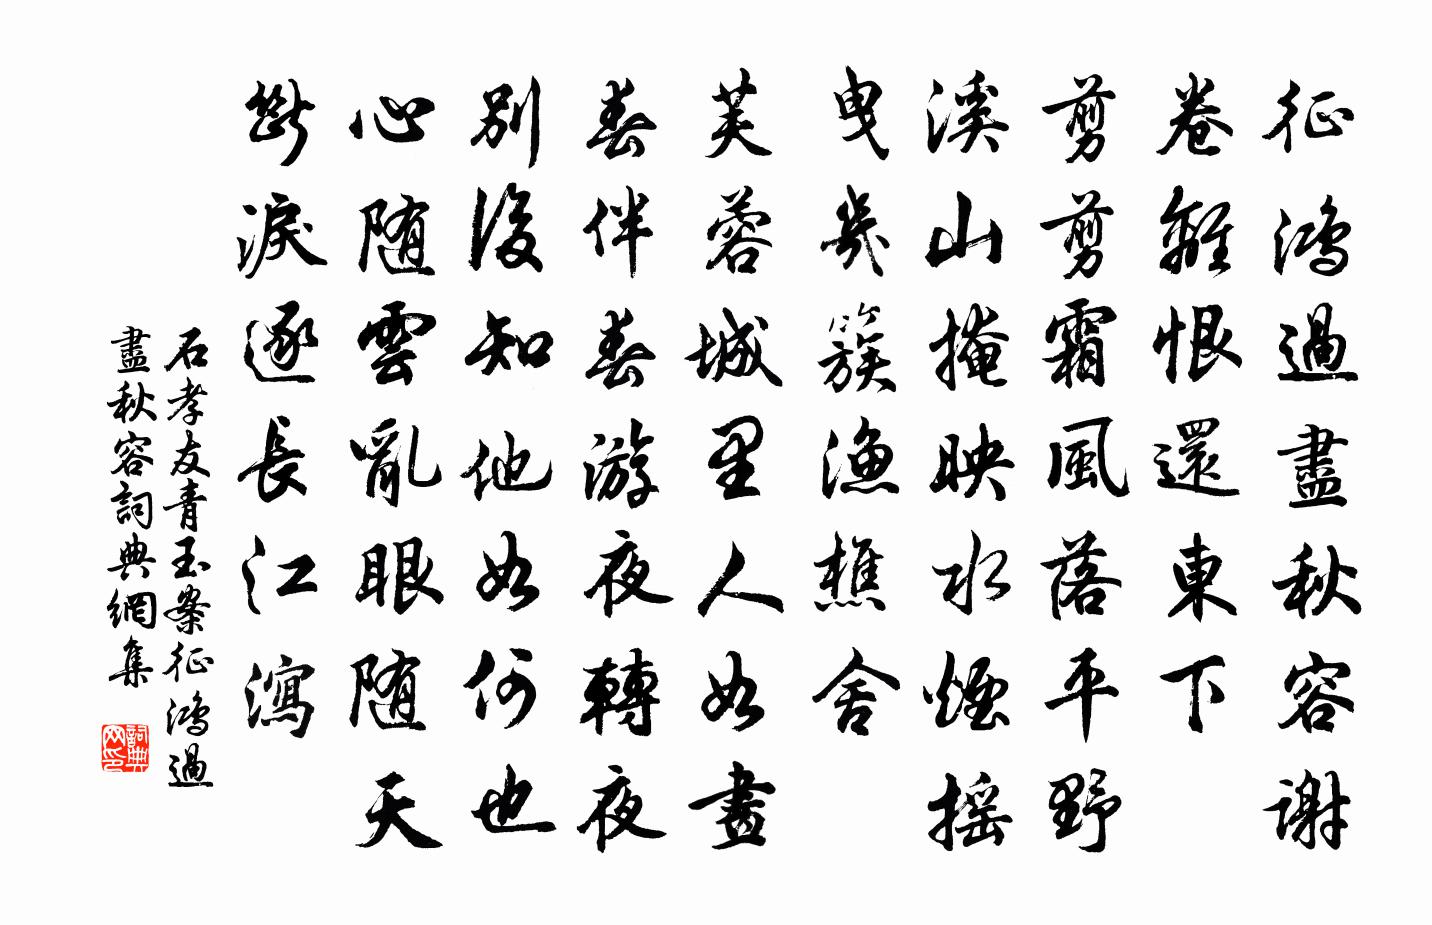 征鴻過盡秋容謝
卷離恨還東下
剪剪霜風落平野
溪山掩映水煙搖
曳幾簇漁樵舍
芙蓉城里人如畫
春伴春游夜轉夜
別後知他如何也
心隨雲亂眼隨天
斷淚逐長江瀉
石孝友青玉案征鴻過
盡秋容詞典網集
詞典
网印